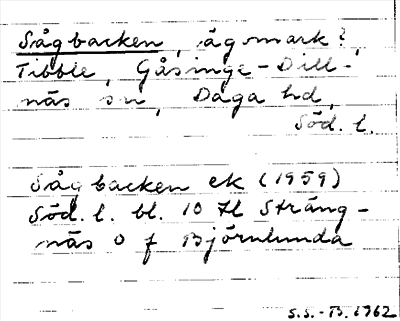 Sågbacken, ägomark?,
Tibble, Gåsinge-Dill-
näs sn, Daga hd,
Söd. l.
Sågbacken ek (1959)
Söd. l. bl. 10 Fl Sträng-
näs O f Björnlunda
S.S.-B. 1962